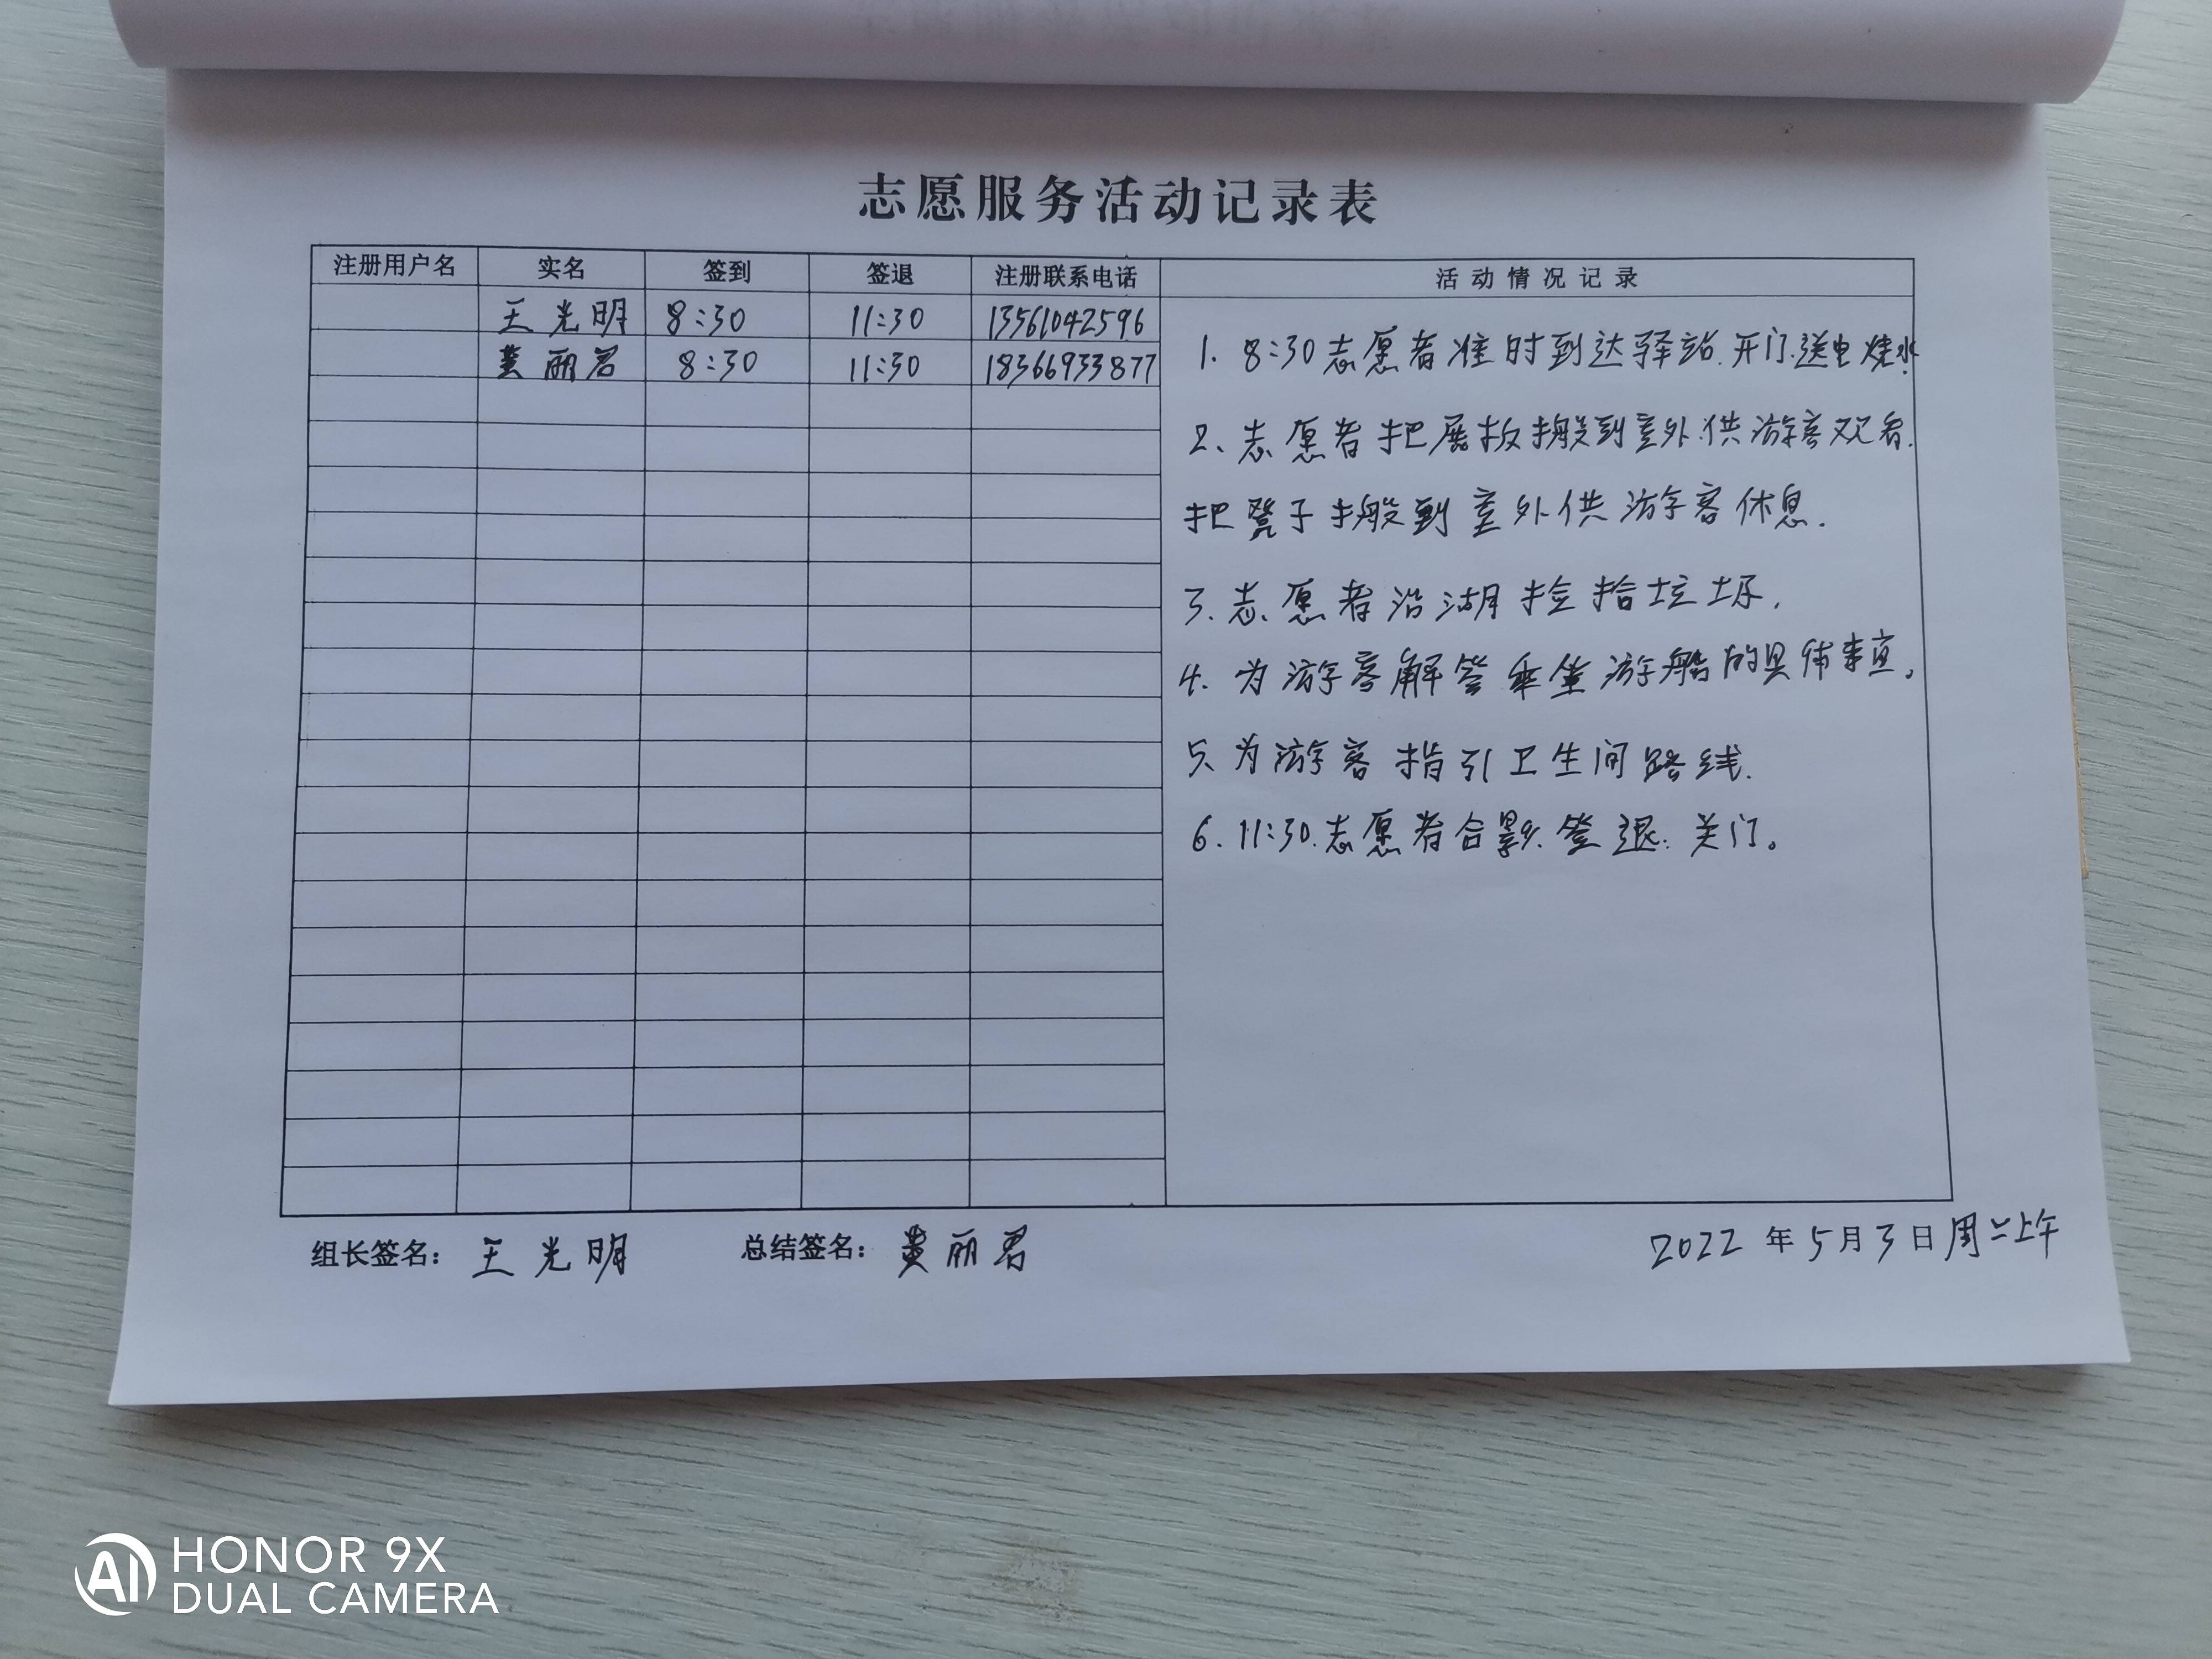 志愿服务活动记录表
注册用户名 实名 签到 签退 注册联系电话 活动情况记录
王光明 8:30 11:30 13561042596
黄丽君 8:30 11:30 18366933877
1. 8:30志愿者准时到达驿站.开门.送电烧水.
2、志愿者把展板搬到室外.供游客观看.
把凳子搬到室外供游客休息.
3.志愿者沿湖捡拾垃圾.
4.为游客解答乘坐游船的具体事宜。
5、为游客指引卫生间路线.
6.11:30.志愿者合影.签退.关门。
组长签名: 王光明 总结签名: 黄丽君 2022年5月3日周二上午
AI HONOR 9X
DUAL CAMERA